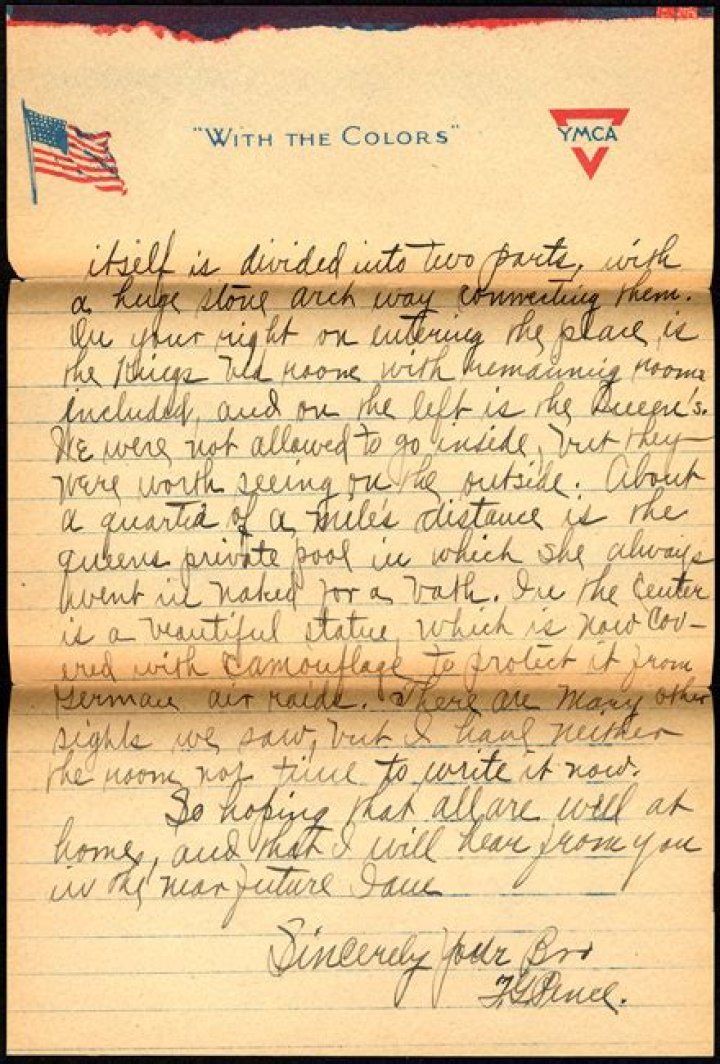 "WITH THE COLORS"
YMCA
itself is divided into two parts, with
a huge stone arch way connecting them.
On your right on entering the place, is
the Kings bed room with remanning rooms
included, and on the left is the Queen's.
We were not allowed to go inside, but they
were worth seeing on the outside. About
a quarter of a mile's distance is the
queens private pool in which she always
went in naked for a bath. In the center
is a beautiful statue, which is now cov-
ered with camouflage to protect it from
German air raids. There are many other
sights we saw, but I have neither
the room nor time to write it now.
So hoping that all are well at
home, and that I will hear from you
in the near future I am
Sincerely your Bro
F.G. Pence.